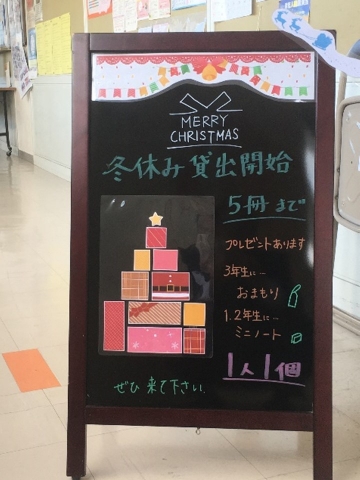 MERRY
CHRISTMAS
冬休み貸出開始
5冊まで
プレゼントあります
3年生に…
おまもり
1.2年生に…
ミニノート
1人1個
ぜひ来て下さい